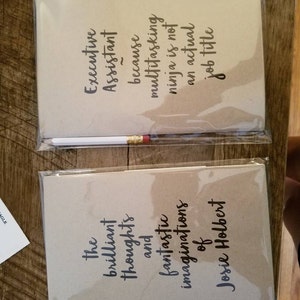 Executive
Assistant
~
because
multitasking
ninja is not
an actual
job title
the
brilliant
thoughts
and
fantastic
imaginations
of
Josie Holbert